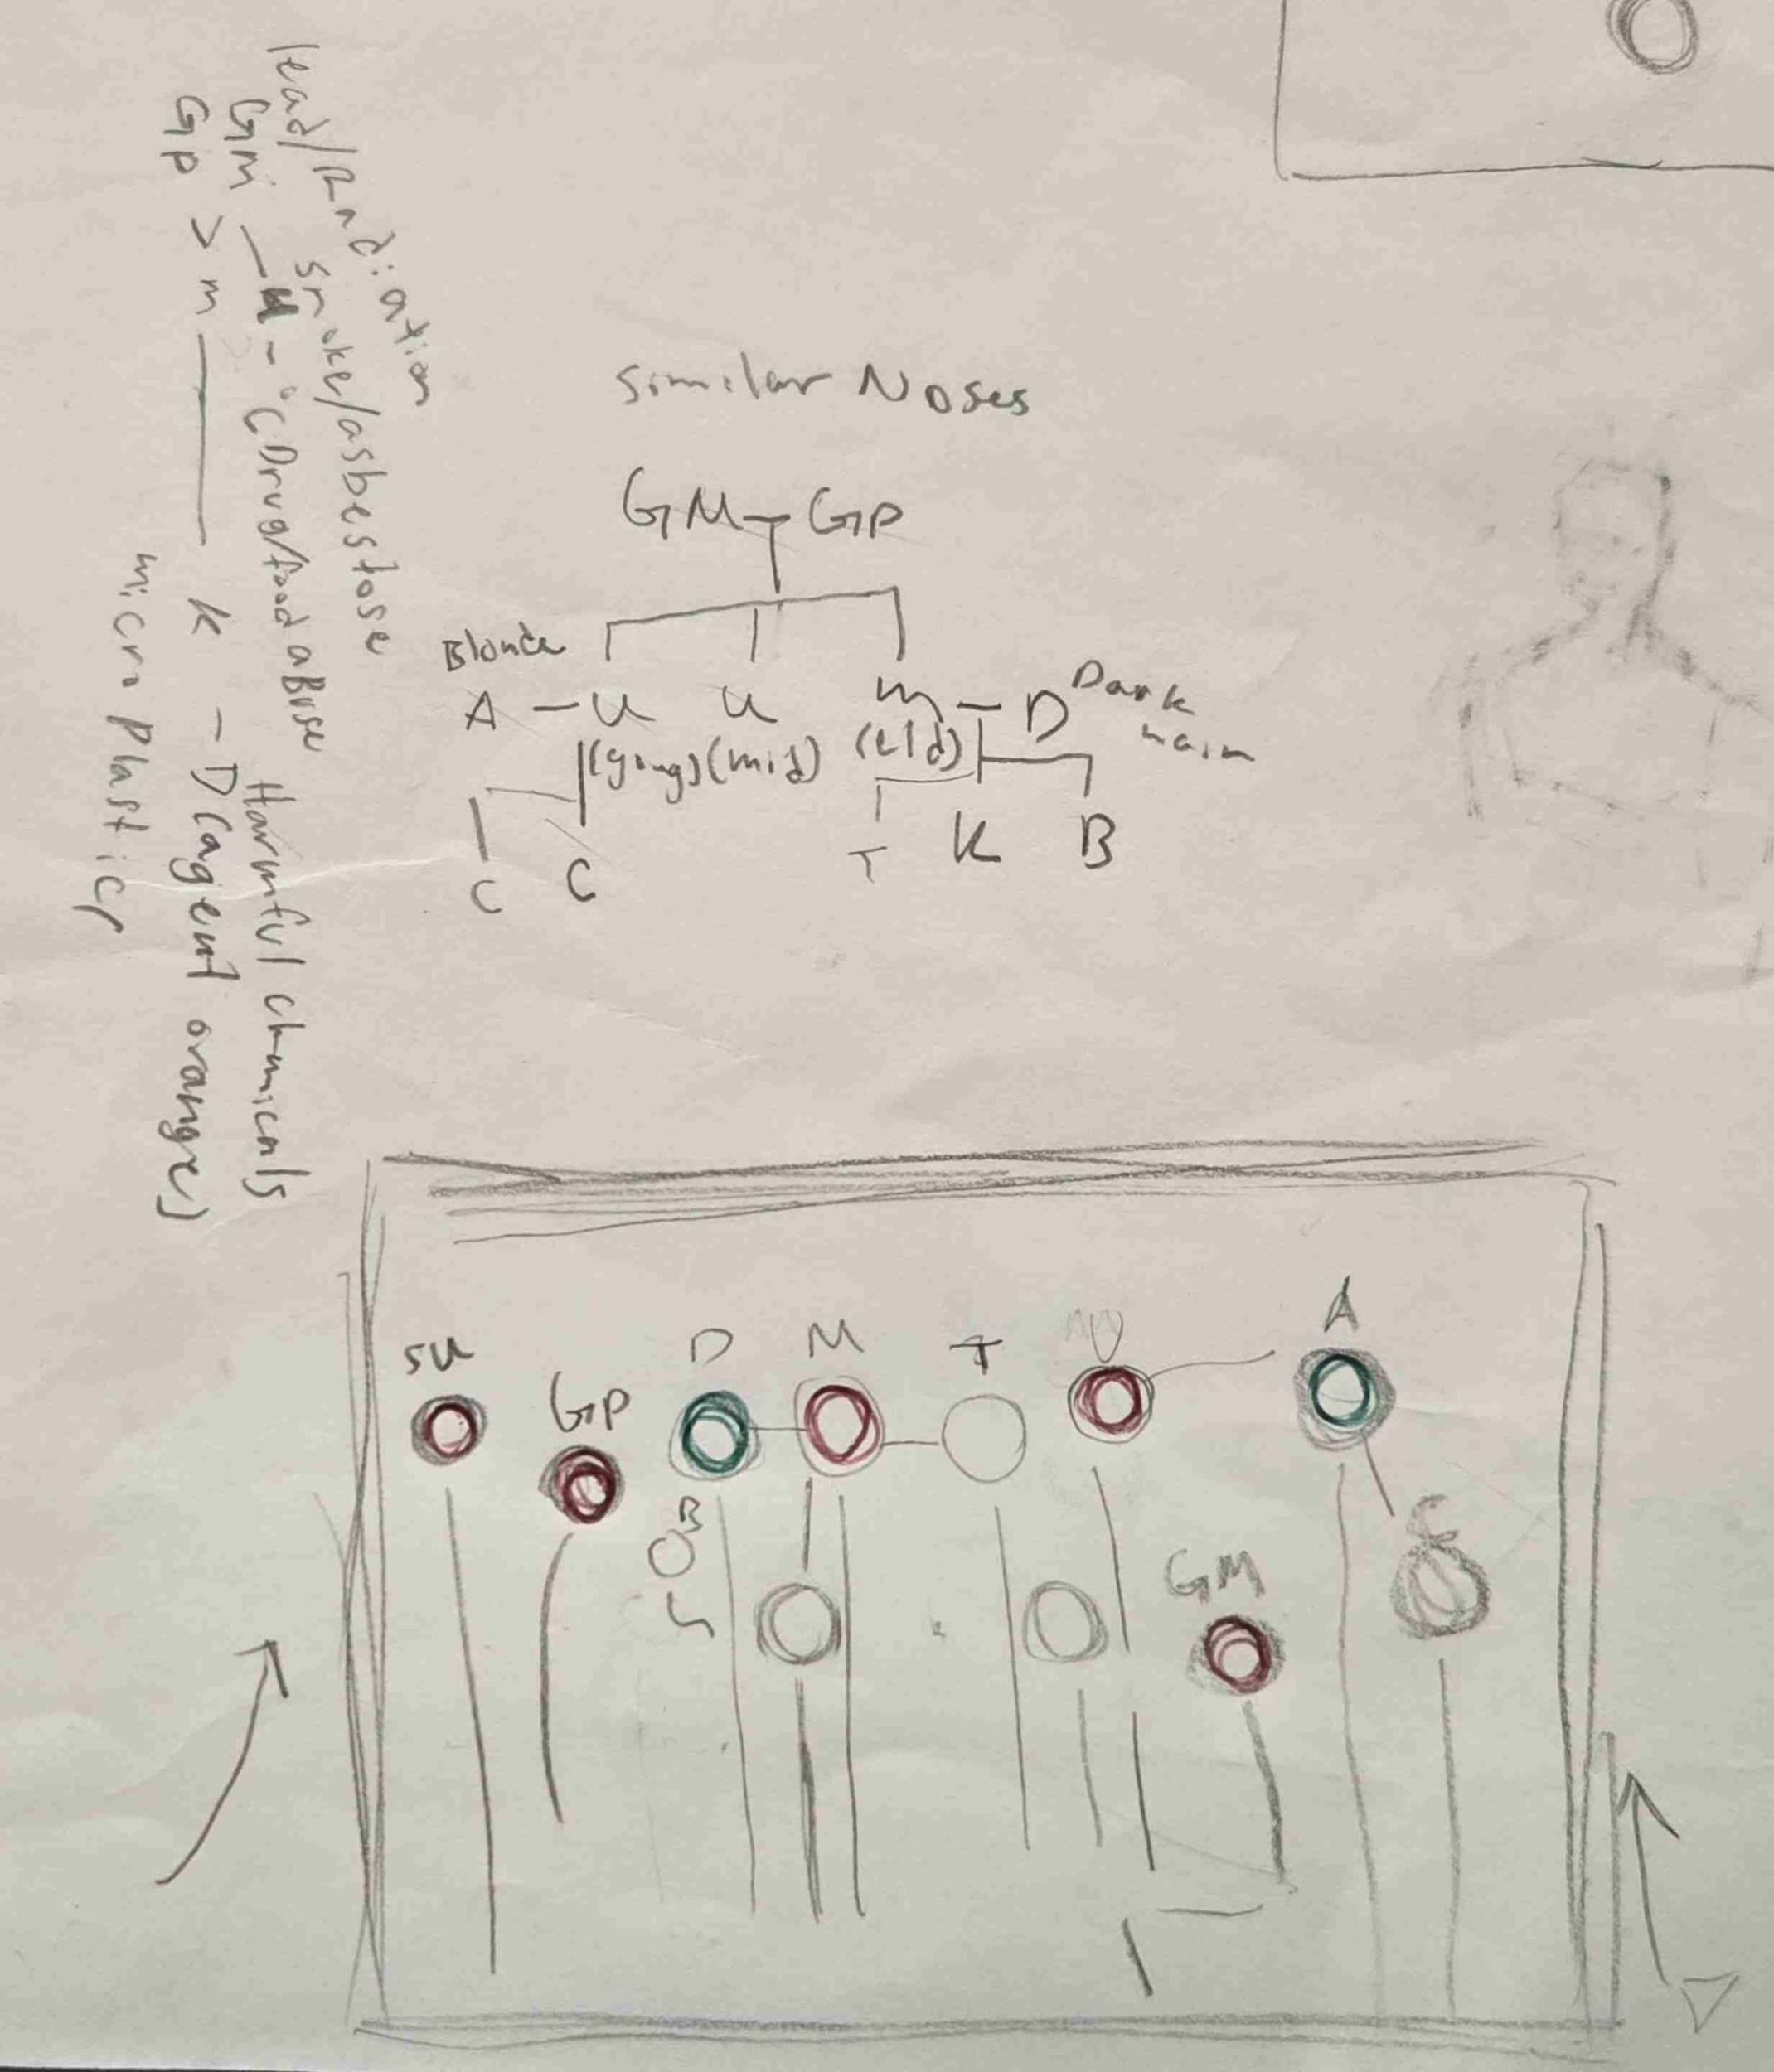 lead/Radiation
smoke/asbestose
GM — u - (Drug/food aBuse
Harmful chemicals
GP > m — k - D (agent orange)
micro plastics
Similar Noses
GM GP
Blonde
A - u u m - D Dark hair
(yong) (mid) (eld)
C C T K B
su GP D M T U A
B
GM C